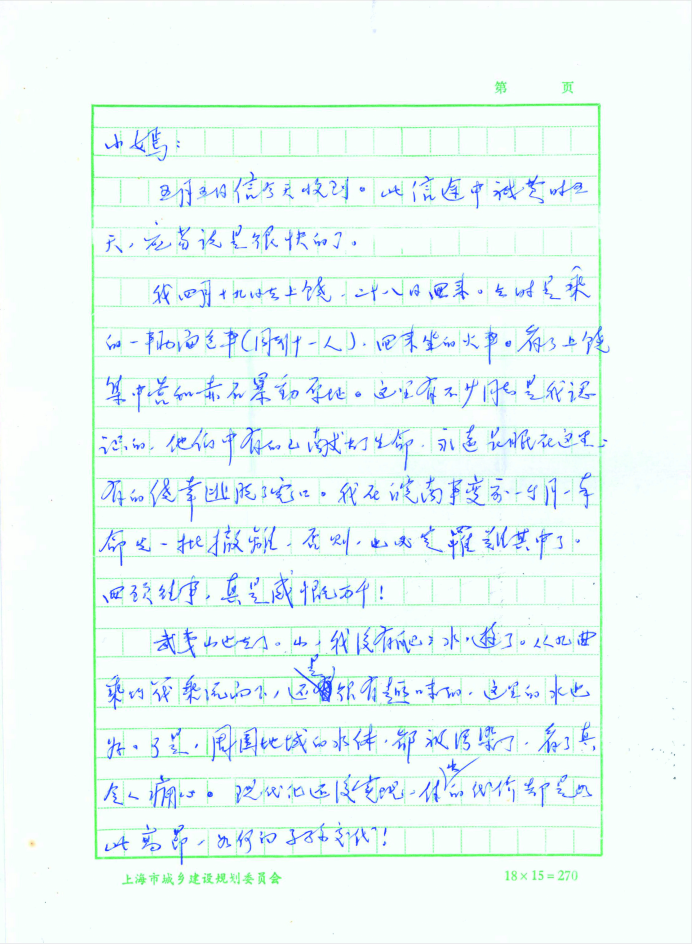 第 页
小嫣：
五月五日信今天收到。此信途中被黄时五
天，应当说是很快的了。
我四月十九日去上饶，二十八日回来。去时是乘
的一辆面包车（同行十一人），回来坐的火车。看了上饶
集中营和赤石暴动原地。这里有不少同志是我认
识的，他们中有的已献出了生命，永远长眠在这里；
有的侥幸逃脱了虎口。我在皖南事变前一个月奉
命先一批撤离，否则，也必定罹难其中了。
回顾往事，真是感慨万千！
武夷山也去了。山，我没有爬；水，游了。从九曲
乘竹筏乘流而下，还是很有趣味的，这里的水也
好。可是，周围地域的水体，都被污染了，看了真
令人痛心。现代化还没实现，付出的代价却是如
此高昂，如何向子孙交代！
上海市城乡建设规划委员会
18×15=270